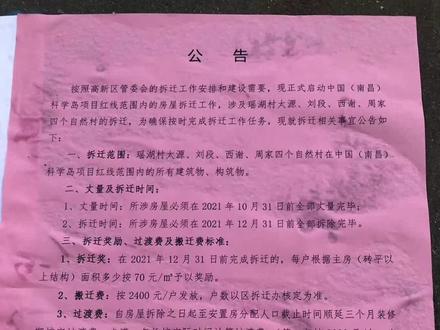 公 告
按照高新区管委会的拆迁工作安排和建设需要，现正式启动中国（南昌）
科学岛项目红线范围内的房屋拆迁工作，涉及瑶湖村大源、刘段、西谢、周家
四个自然村的拆迁，为确保按时完成拆迁工作任务，现就拆迁相关事宜公告如
下：
一、拆迁范围：瑶湖村大源、刘段、西谢、周家四个自然村在中国（南昌）
科学岛项目红线范围内的所有建筑物、构筑物。
二、丈量及拆迁时间：
1、丈量时间：所涉房屋必须在 2021 年 10 月 31 日前全部丈量完毕；
2、拆迁时间：所涉房屋必须在 2021 年 12 月 31 日前全部拆除完毕。
三、拆迁奖励、过渡费及搬迁费标准：
1、拆迁奖：在 2021 年 12 月 31 日前完成拆迁的，每户根据主房（砖平以
上结构）面积多少按 70 元/㎡予以奖励。
2、搬迁费：按 2400 元/户发放，户数以区拆迁办核定为准。
3、过渡费：自房屋拆除之日起至安置房分配人口截止时间顺延三个月装修